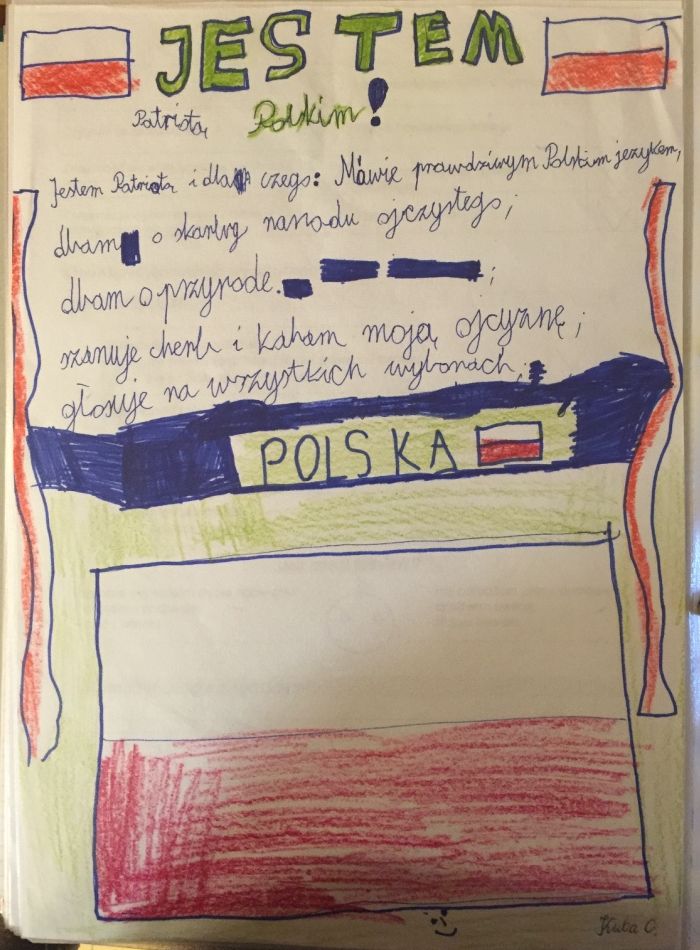 JESTEM
Patriotą Polskim!
Jestem Patriotą i dla czego: Mówie prawdziwym Polskim językem,
dbam o skarby narodu ojczystego;
dbam o przyrode. ;
szanuje cherb i kaham moją ojcyznę;
głosuje na wszystkich wyborach;
POLSKA
Kuba C.